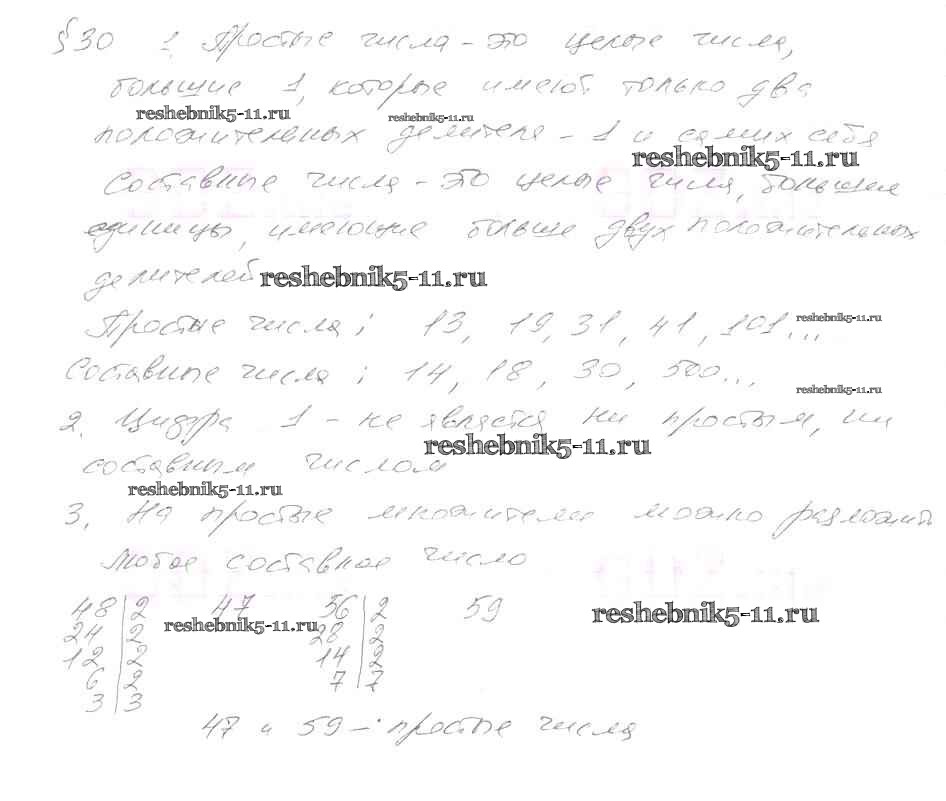 §30 1. Простые числа - это целые числа,
большие 1, которые имеют только два
reshebnik5-11.ru reshebnik5-11.ru
положительных делителя - 1 и самих себя
reshebnik5-11.ru
Составные числа - это целые числа, большие
единицы, имеющие больше двух положительных
делителей reshebnik5-11.ru
Простые числа: 13, 19, 31, 41, 101...
reshebnik5-11.ru
Составные числа: 14, 18, 30, 500...
reshebnik5-11.ru
2. Цифра 1 - не является ни простым, ни
reshebnik5-11.ru
составным числом
reshebnik5-11.ru
3. На простые множители можно разложить
любое составное число
48|2 47 56|2 59
reshebnik5-11.ru
24|2 28|2
reshebnik5-11.ru
12|2 14|2
6|2 7|7
3|3
47 и 59 - простые числа